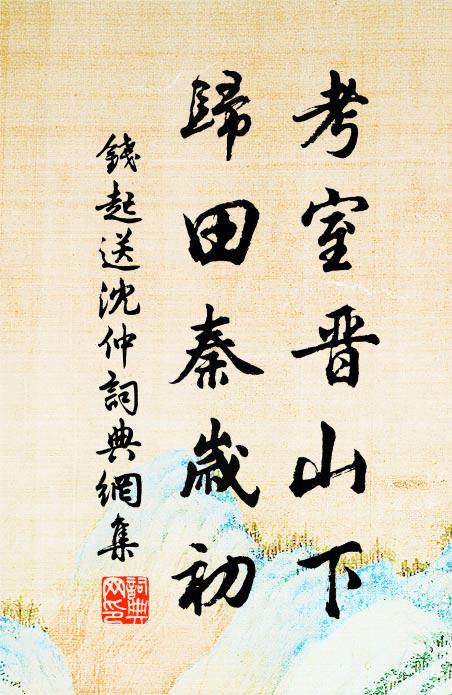 考室晋山下
歸田秦歲初
錢起送沈仲詞典網集
詞典網印